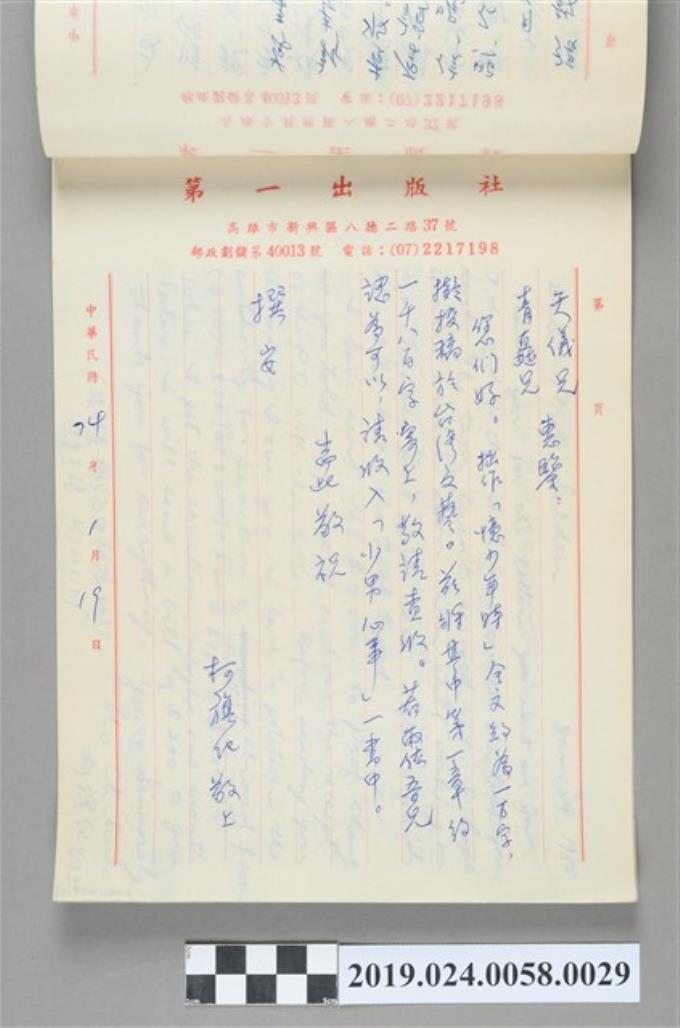 郵政劃儲第40013號 電話:(07)2217198
第一出版社
高雄市新興區八德二路37號
郵政劃儲第40013號 電話:(07)2217198
第 頁
天儀兄
青矗兄 惠鑒:
您們好。拙作「憶少年時」全文約為一万字,
擬投稿於台湾文藝。茲將其中第一章約
一千八百字寄上,敬請查收。若兩位吾兄
認為可以,請收入「少男心事」一書中。
耑此敬祝
撰安
柯旗化敬上
中華民國74年1月19日
2019.024.0058.0029